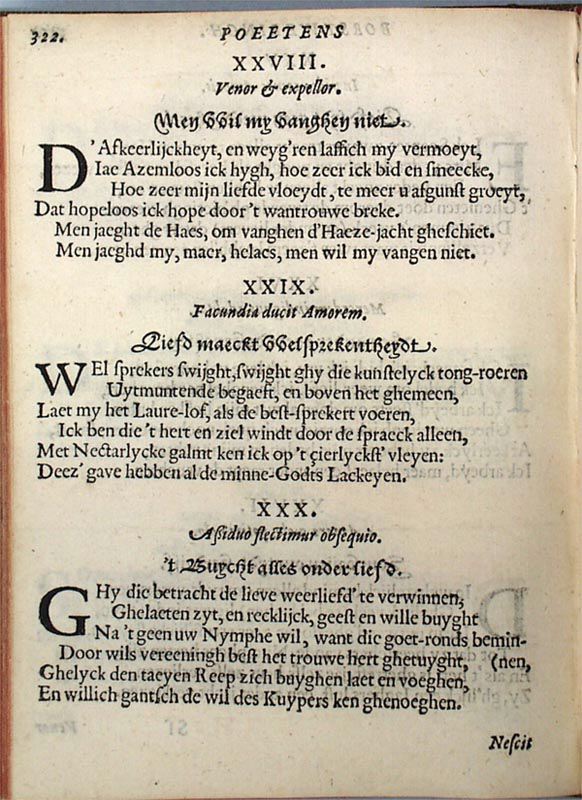 322.
POEETENS
XXVIII.
Venor & expellor.
Men Wil my Vanghen niet.
D'Afkeerlijckheyt, en weyg'ren laffich my vermoeyt,
Iae Azemloos ick hygh, hoe zeer ick bid en smeecke,
Hoe zeer mijn liefde vloeydt, te meer u afgunst groeyt,
Dat hopeloos ick hope door't wantrouwe breke.
Men jaeght de Haes, om vanghen d'Haeze-jacht gheschiet.
Men jaeghd my, maer, helaes, men wil my vangen niet.
XXIX.
Facundia ducit Amorem.
Liefd maeckt Welsprekentheydt.
WEl sprekers swijght, swijght ghy die kunstelyck tong-roeren
Uytmuntende begaeft, en boven het ghemeen,
Laet my het Laure-lof, als de best-sprekert voeren,
Ick ben die 't hert en ziel windt door de spraeck alleen,
Met Nectarlycke galmt ken ick op 't çierlyckst' vleyen:
Deez' gave hebben al de minne-Godts Lackeyen.
XXX.
Assiduo flectimur obsequio.
't Buycht alles onder liefd.
GHy die betracht de lieve weerliefd' te verwinnen,
Ghelaeten zyt, en recklijck, geest en wille buyght
Na 't geen uw Nymphe wil, want die goet-ronds bemin-
Door wils vereeningh best het trouwe hert ghetuyght, (nen,
Ghelyck den taeyen Reep zich buyghen laet en voeghen,
En willich gantsch de wil des Kuypers ken ghenoeghen.
Nescit